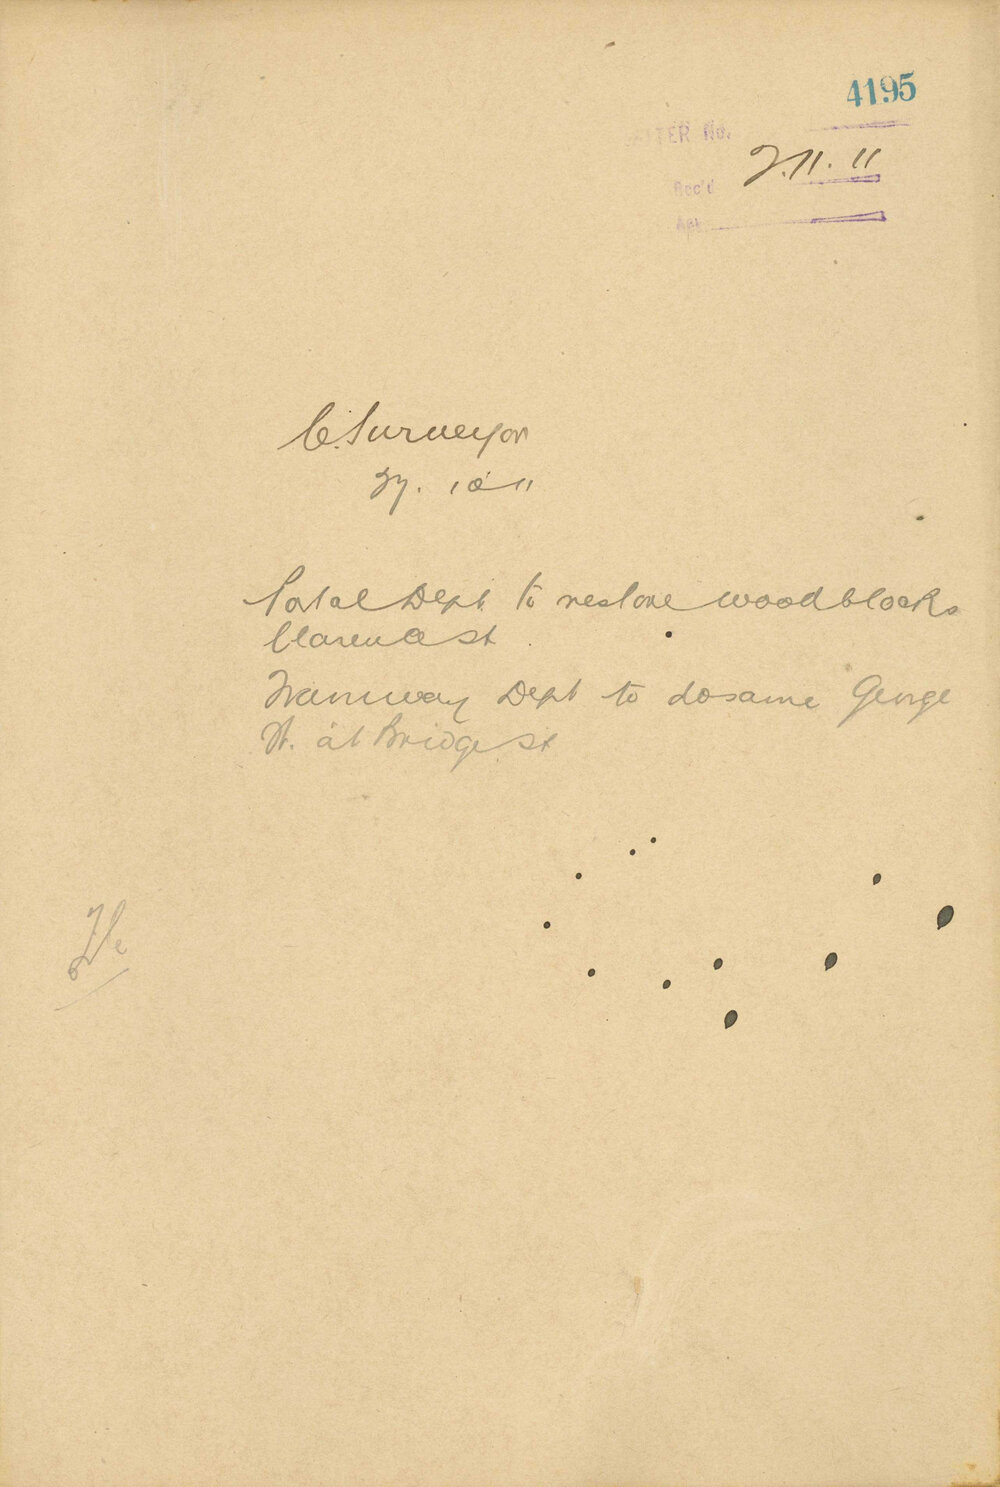 4195
LETTER No.
Rec'd 2.11.11
C. Surveyor
27. 10 11
Postal Dept to restore woodblocks
Clarence St
Tramway Dept to do same George
St. at Bridge St
File